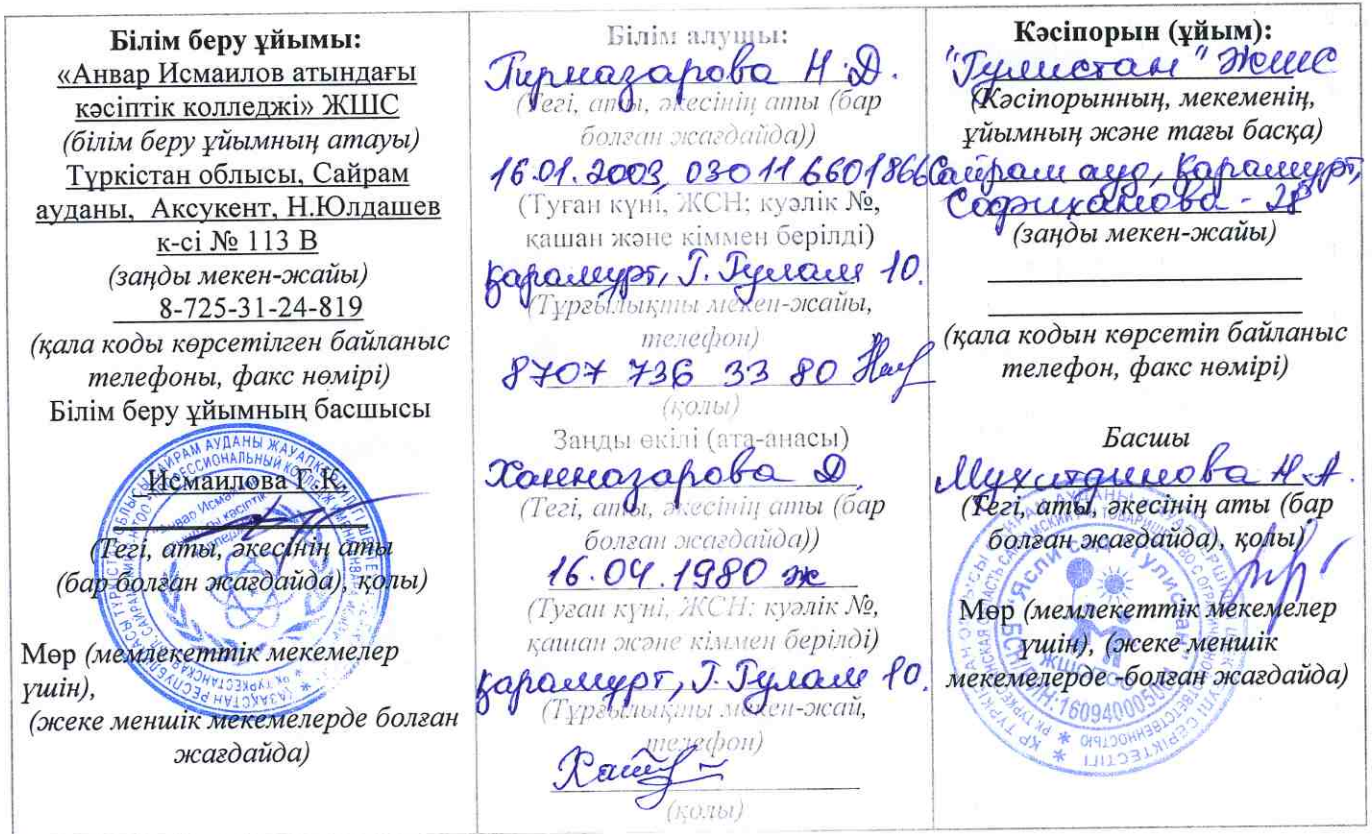 Білім беру ұйымы:
«Анвар Исмаилов атындағы
кәсіптік колледжі» ЖШС
(білім беру ұйымның атауы)
Түркістан облысы, Сайрам
ауданы, Аксукент, Н.Юлдашев
к-сі № 113 В
(заңды мекен-жайы)
8-725-31-24-819
(қала коды көрсетілген байланыс
телефоны, факс нөмірі)
Білім беру ұйымның басшысы
Исмаилова Г.К.
(Тегі, аты, әкесінің аты
(бар болған жағдайда), қолы)
Мөр (мемлекеттік мекемелер
үшін),
(жеке меншік мекемелерде болған
жағдайда)
Білім алушы:
Пирназарова Н.Д.
(Тегі, аты, әкесінің аты (бар
болған жағдайда))
16.01.2003, 030116601866
(Туған күні, ЖСН; куәлік №,
қашан және кіммен берілді)
Қарамурт, Г. Гулам 10.
(Тұрғылықты мекен-жайы,
телефон)
8707 736 33 80
(қолы)
Заңды өкілі (ата-анасы)
Ханназарова Д.
(Тегі, аты, әкесінің аты (бар
болған жағдайда))
16.04.1980 ж
(Туған күні, ЖСН; куәлік №,
қашан және кіммен берілді)
Қарамурт, Г. Гулам 10.
(Тұрғылықты мекен-жай,
телефон)
(қолы)
Кәсіпорын (ұйым):
"Гулистан" ЖШС
(Кәсіпорынның, мекеменің,
ұйымның және тағы басқа)
Сайрам ауд, Қарамурт,
Софиханова - 28
(заңды мекен-жайы)
(қала кодын көрсетіп байланыс
телефон, факс нөмірі)
Басшы
Мухитдинова Н.А.
(Тегі, аты, әкесінің аты (бар
болған жағдайда), қолы)
Мөр (мемлекеттік мекемелер
үшін), (жеке меншік
мекемелерде -болған жағдайда)
Ясли сад "Гулистан"